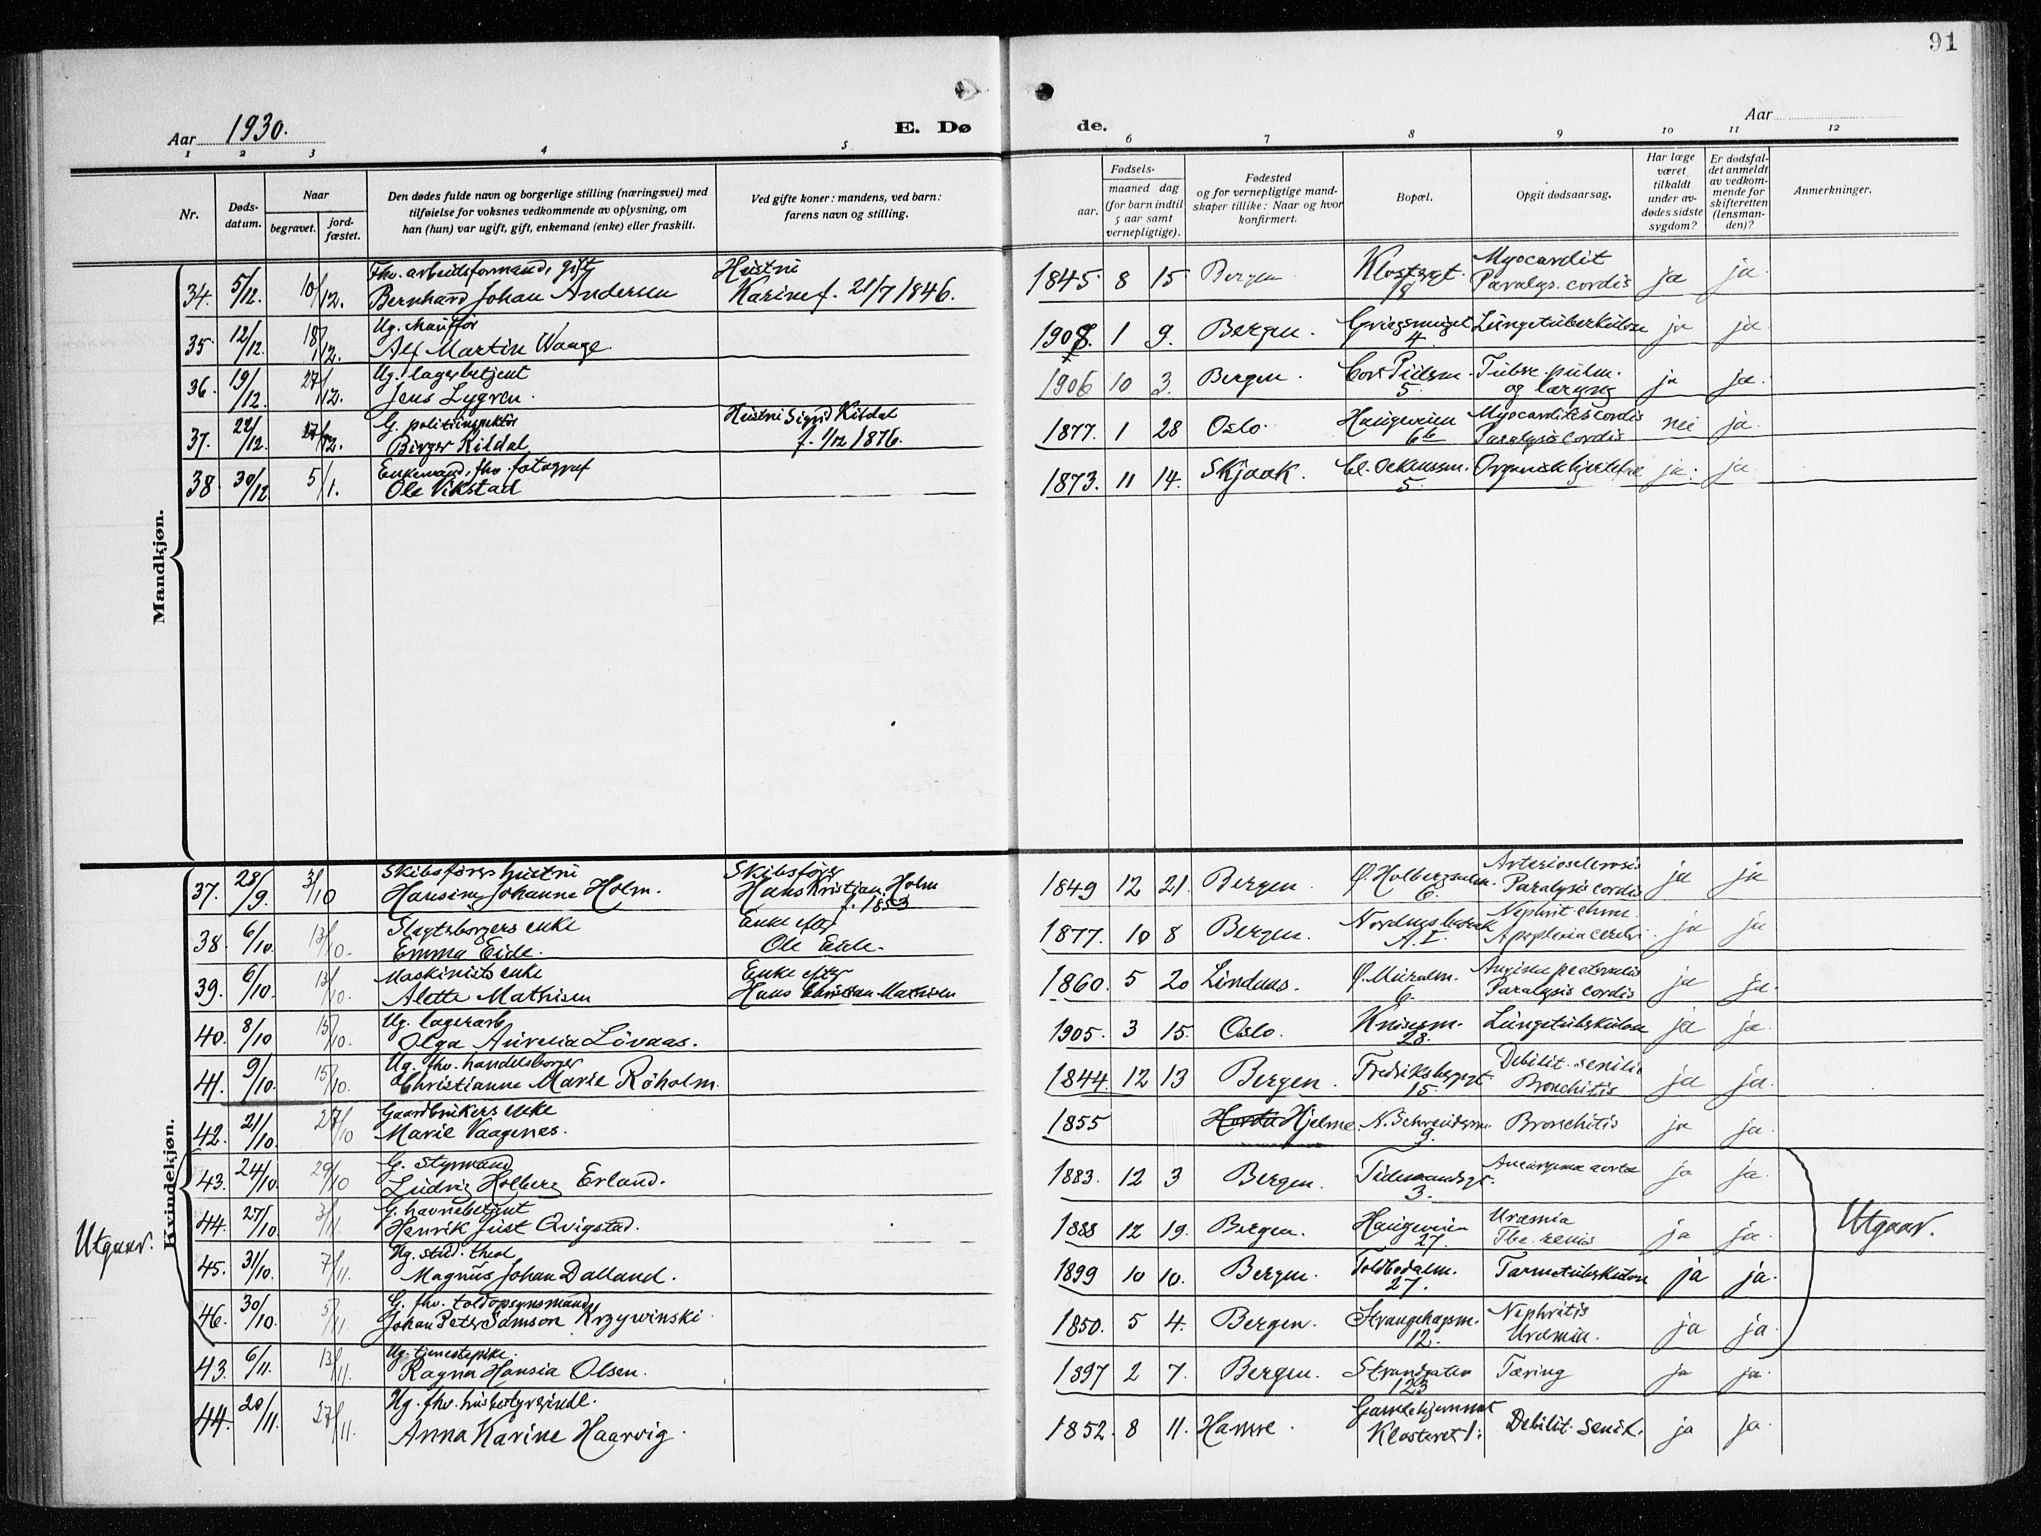 91
Aar 1930.
E. Dø
de.
Aar
1 2 3 4 5 6 7 8 9 10 11 12
Nr.
Døds-
datum.
Naar
begravet.
jord-
fæstet.
Den dødes fulde navn og borgerlige stilling (næringsvei) med
tilføielse for voksnes vedkommende av oplysning, om
han (hun) var ugift, gift, enkemand (enke) eller fraskilt.
Ved gifte koner: mandens, ved barn:
farens navn og stilling.
Fødsels-
aar.
maaned dag
(for barn indtil
5 aar samt
vernepligtige).
Fødested
og for vernepligtige mand-
skaper tillike: Naar og hvor
konfirmert.
Bopæl.
Opgit dødsaarsag.
Har læge
været
tilkaldt
under av-
dødes sidste
sygdom?
Er dødsfal-
det anmeldt
av vedkom-
mende for
skifteretten
(lensman-
den)?
Anmerkninger.
Mandkjøn.
Fhv. arbeidsformand, gift Hustru Myocardit
34. 5/12. 10/12. Bernhard Johan Andersen Karine f. 21/7 1846. 1845. 8 15 Bergen Klostergt. 18 Paralys. cordis ja ja.
Ug.
35. 12/12. 18/12. Alf Martin Waage. 1908. 1 9. Bergen. 4. Lungetuberkulose ja ja
Ug. lagerbetjent
36. 19/12. 27/12. Jens Lygren. 1906 10 3. Bergen. 5. Tubrc. pulm. og laryng ja ja.
G. politiinspektør Hustru Sigrid Kildal Myocarditis cordis
37. 22/12. 27/12. Birger Kildal f. 1/12 1876. 1877. 1 28 Oslo. Haugeveien 6b Paralysis cordis nei ja.
Enkemand, fhv. fotograf
38. 30/12. 5/1. Ole Vikstad 1873. 11 14. Skjaak. 5. Organisk hjertefeil ja. ja
Kvindekjøn.
Skibsførers hustru Skibsfører Arteriosclerosis
37. 28/9. 3/10 Hansine Johanne Holm. Hans Kristian Holm f. 1853 1849 12 21. Bergen. Ø. Holbergsalm. 6. Paralysis cordis ja ja
Slagtsborgers enke Enke efter Nephrit chron.
38. 6/10. 13/10. Emma Eide. Ole Eide. 1877. 10 8 Bergen. A. I. Apoplexia cerebri. ja ja
Maskinists enke Enke efter Angina pectoralis
39. 6/10. 13/10. Alette Mathisen Hans Christian Mathisen 1860. 5 20 Lindaas. Ø. Muralm. 6. Paralysis cordis ja ja.
Ug. lagerarb
40. 8/10 15/10. Olga Aurelia Lövaas. 1905. 3 15. Oslo. 28. Lungetuberkulose ja ja.
Ug. fhv. handelsborger Debilit. senilis
41. 9/10 15/10. Christianne Marie Röholm. 1844. 12 13 Bergen. Fredriksberggt 15. Bronchitis ja ja.
Gaardbrukers enke
42. 21/10. 27/10 Marie Vaagenes. 1855 Hjelme. 9. Bronchitis ja ja.
G. styrmand
43. 24/10. 29/10 Ludvig Holberg Erland. 1883. 12 3 Bergen. Tidemandsgt. 3. Aneurysma aortae ja ja.
G. havnebetjent Uræmia
44. 27/10. 3/11. Henrik Just Qvigstad. 1888 12 19. Bergen. Haugeveien 27. Tbc. renis ja ja.
Utgaar.
Utgaar.
Ug. stud. theol
45. 31/10. 7/11. Magnus Johan Dalland. 1899 10 10. Bergen. Toldbodalm. 27. Tarmtuberkulose ja ja.
G. fhv. toldopsynsmand Nephritis
46. 30/10. 5/11. Johan Peter Samson Krzywinski 1850. 5 4. Bergen. Strangehagen. 12. Uræmia. ja ja.
Ug. tjenestepike.
43. 6/11. 13/11. Ragna Hansia Olsen. 1897 2 7. Bergen. Strandgaten 123 Tæring ja ja.
Ug. fhv. husbestyrerinde. Gamlehjemmet
44. 20/11. 27/11. Anna Karine Haarvig. 1852. 8 11. Hamre. Klosteret 1. Debilit. senil. ja ja.